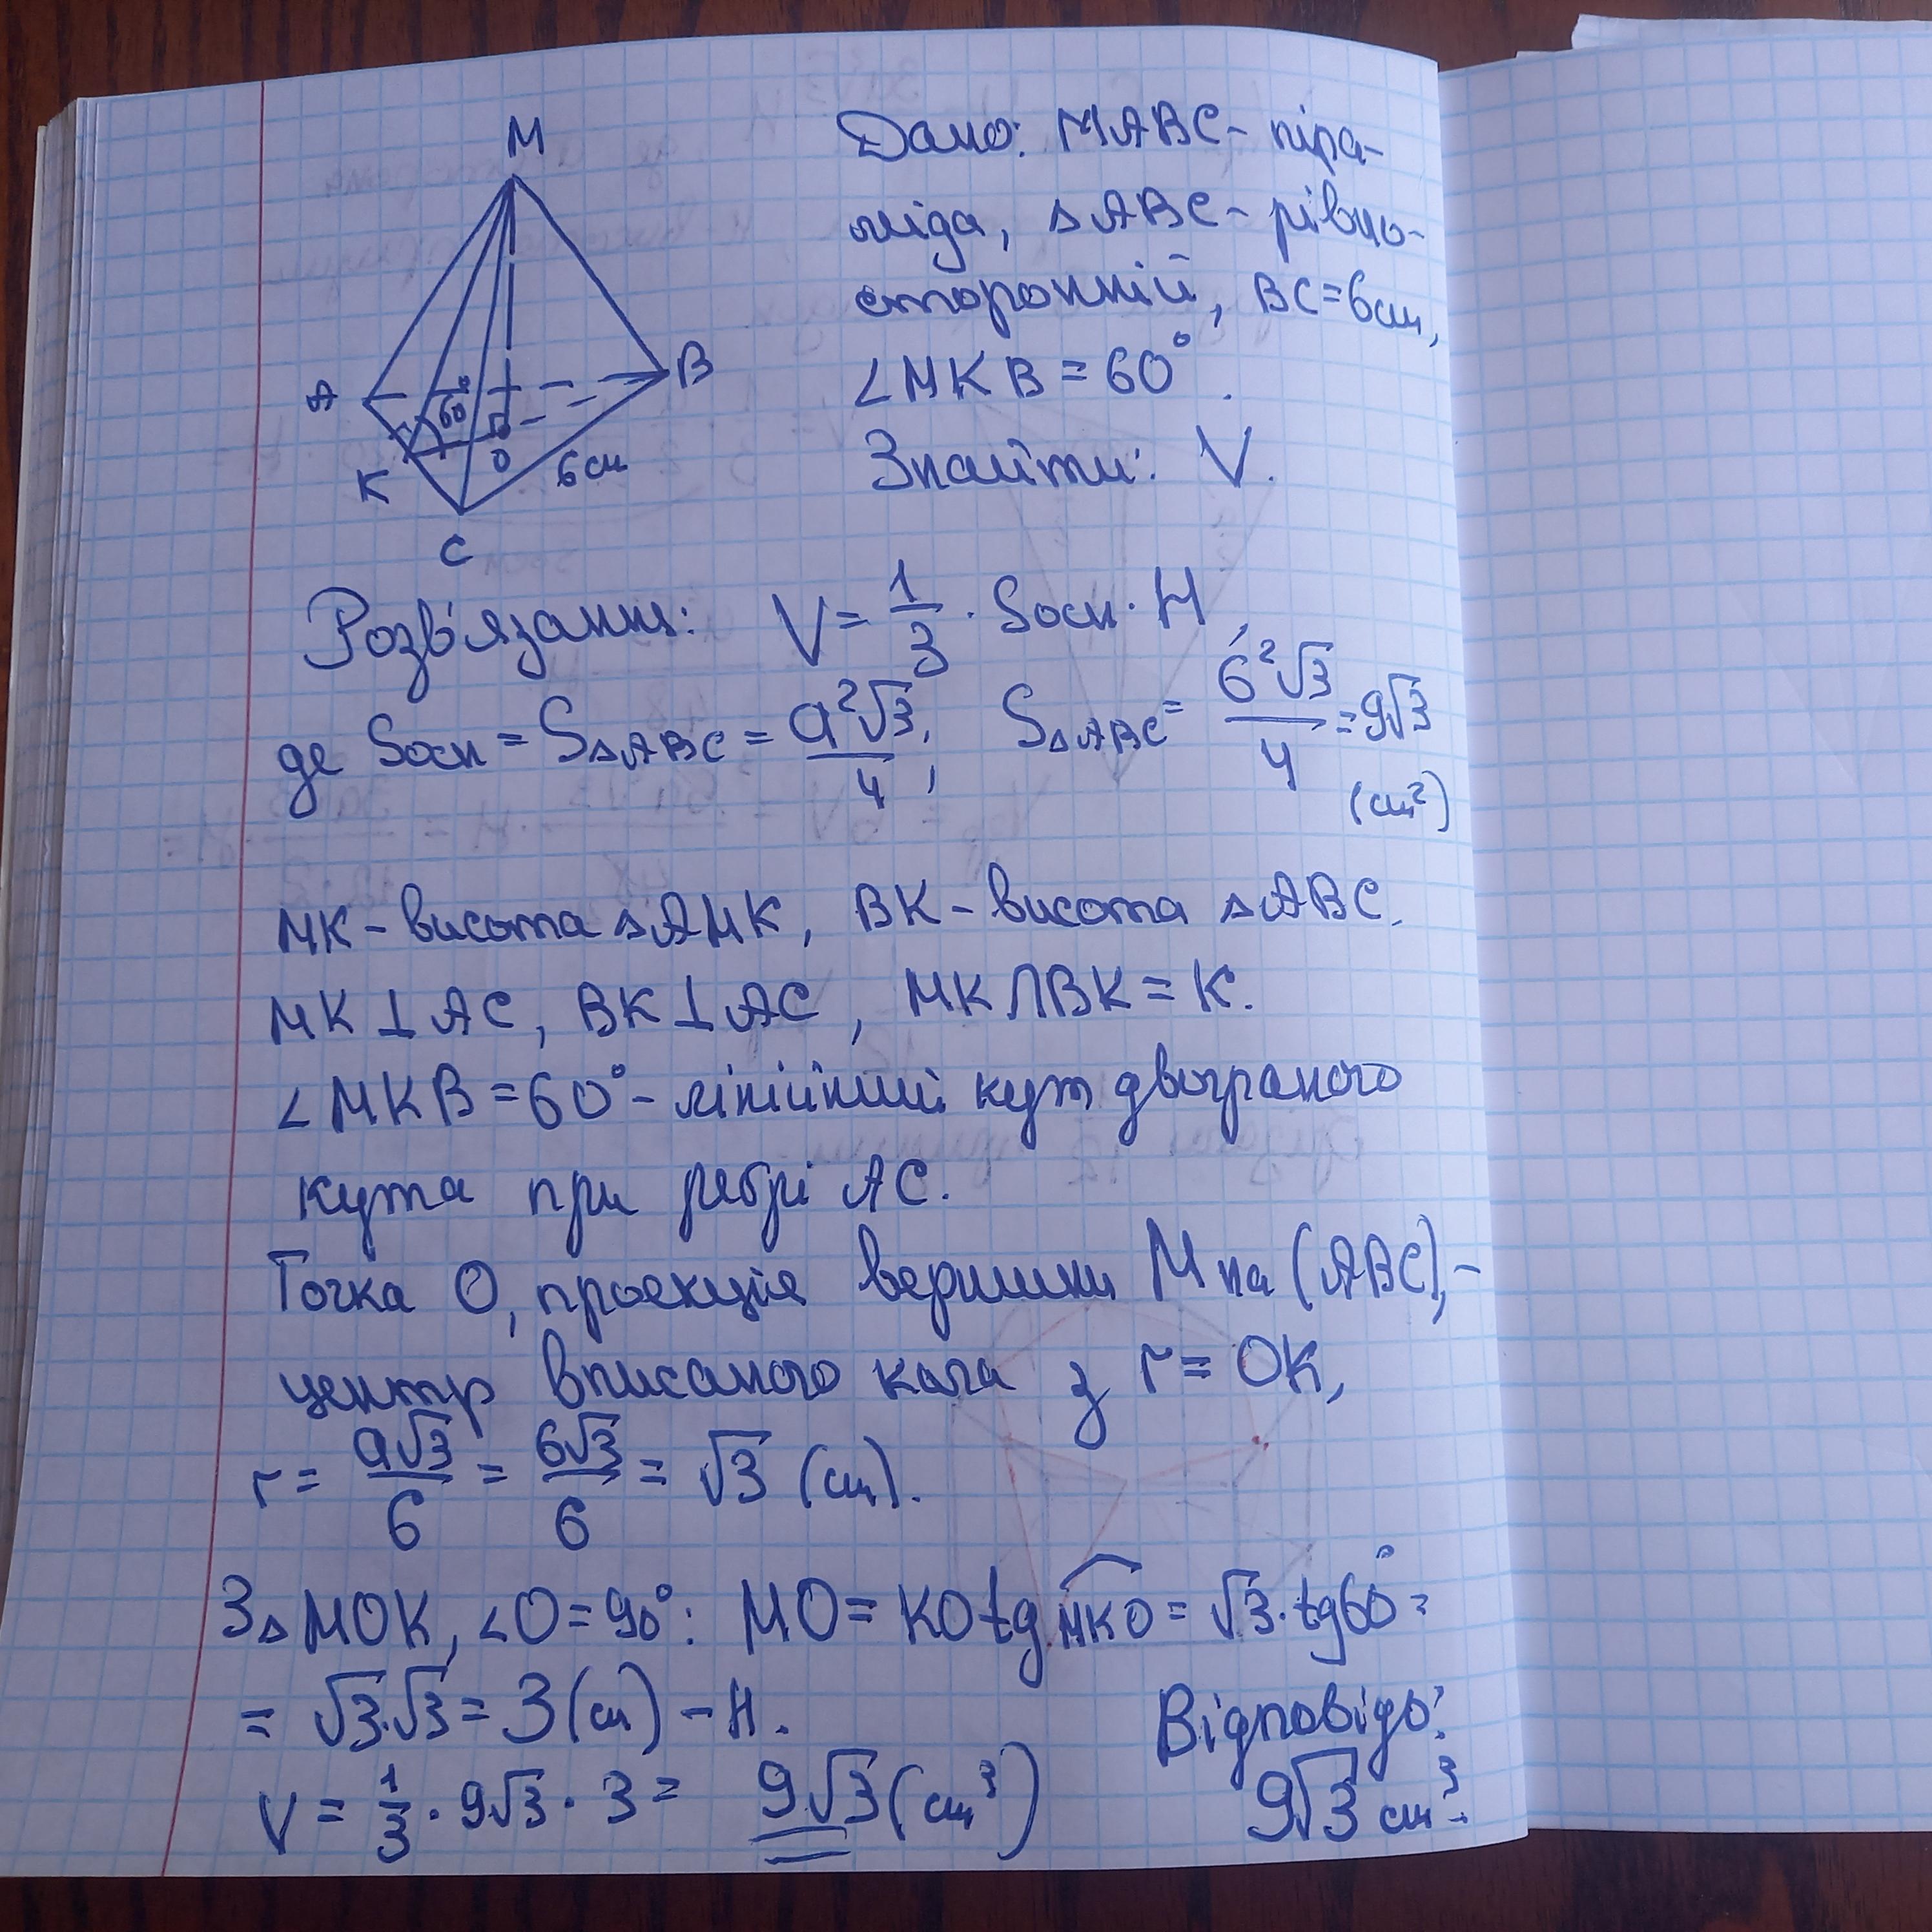 M
A
B
60°
K
O
6 см
C
Дано: MABC - піра-
міда, △ABC - рівно-
сторонній, BC = 6 см,
∠MKB = 60°.
Знайти: V.
Розв'язання: V = 1/3 · Sосн · H,
де Sосн = S△ABC = a²√3/4; S△ABC = 6²√3/4 = 9√3
(см²)
MK - висота △AMK, BK - висота △ABC.
MK ⊥ AC, BK ⊥ AC, MK ∩ BK = K.
∠MKB = 60° - лінійний кут двограного
кута при ребрі AC.
Точка O, проекція вершини M на (ABC), -
центр вписаного кола з r = OK,
r = a√3/6 = 6√3/6 = √3 (см).
З △MOK, ∠O = 90°: MO = KO tg MKO = √3 · tg 60° =
= √3 · √3 = 3 (см) - H.
V = 1/3 · 9√3 · 3 = 9√3 (см³)
Відповідь:
9√3 см³.